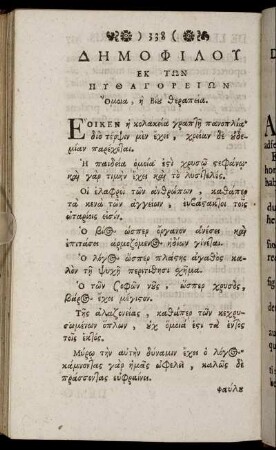 ) 338 (
ΔΗΜΟΦΙΛΟΥ
ΕΚ ΤΩΝ
ΠΥΘΑΓΟΡΕΙΩΝ
Ὅμοια, ἢ βίου θεραπεία.
ΕΟΙΚΕΝ ἡ κολακεία γραπτῇ πανοπλίᾳ·
διὸ τέρψιν μὲν ἔχει, χρείαν δὲ οὐδε-
μίαν παρέχεται.
Ἡ παιδεία ὁμοία ἐστὶ χρυσῷ στεφάνῳ·
καὶ γὰρ τιμὴν ἔχει καὶ τὸ λυσιτελές.
Οἱ ἐλαφροὶ τῶν ἀνθρώπων, καθάπερ
τὰ κενὰ τῶν ἀγγείων, εὐβάστακτοι τοῖς
ὠταρίοις εἰσίν.
Ὁ βίος ὥσπερ ὄργανον ἀνέσει καὶ
ἐπιτάσει ἁρμοζόμενος ἡδίων γίνεται.
Ὁ λόγος ὥσπερ πλάστης ἀγαθὸς κα-
λὸν τῇ ψυχῇ περιτίθησι σχῆμα.
Ὁ τῶν σοφῶν νοῦς, ὥσπερ χρυσὸς,
βάρος ἔχει μέγιστον.
Τῆς ἀλαζονείας, καθάπερ τῶν κεχρυ-
σωμένων ὅπλων, οὐχ ὅμοιά ἐστι τὰ ἐντὸς
τοῖς ἐκτός.
Μύρῳ τὴν αὐτὴν δύναμιν ἔχει ὁ λόγος·
κάμνοντας γὰρ ἡμᾶς ὠφελεῖ, καλῶς δὲ
πράσσοντας εὐφραίνει.
φαύλου